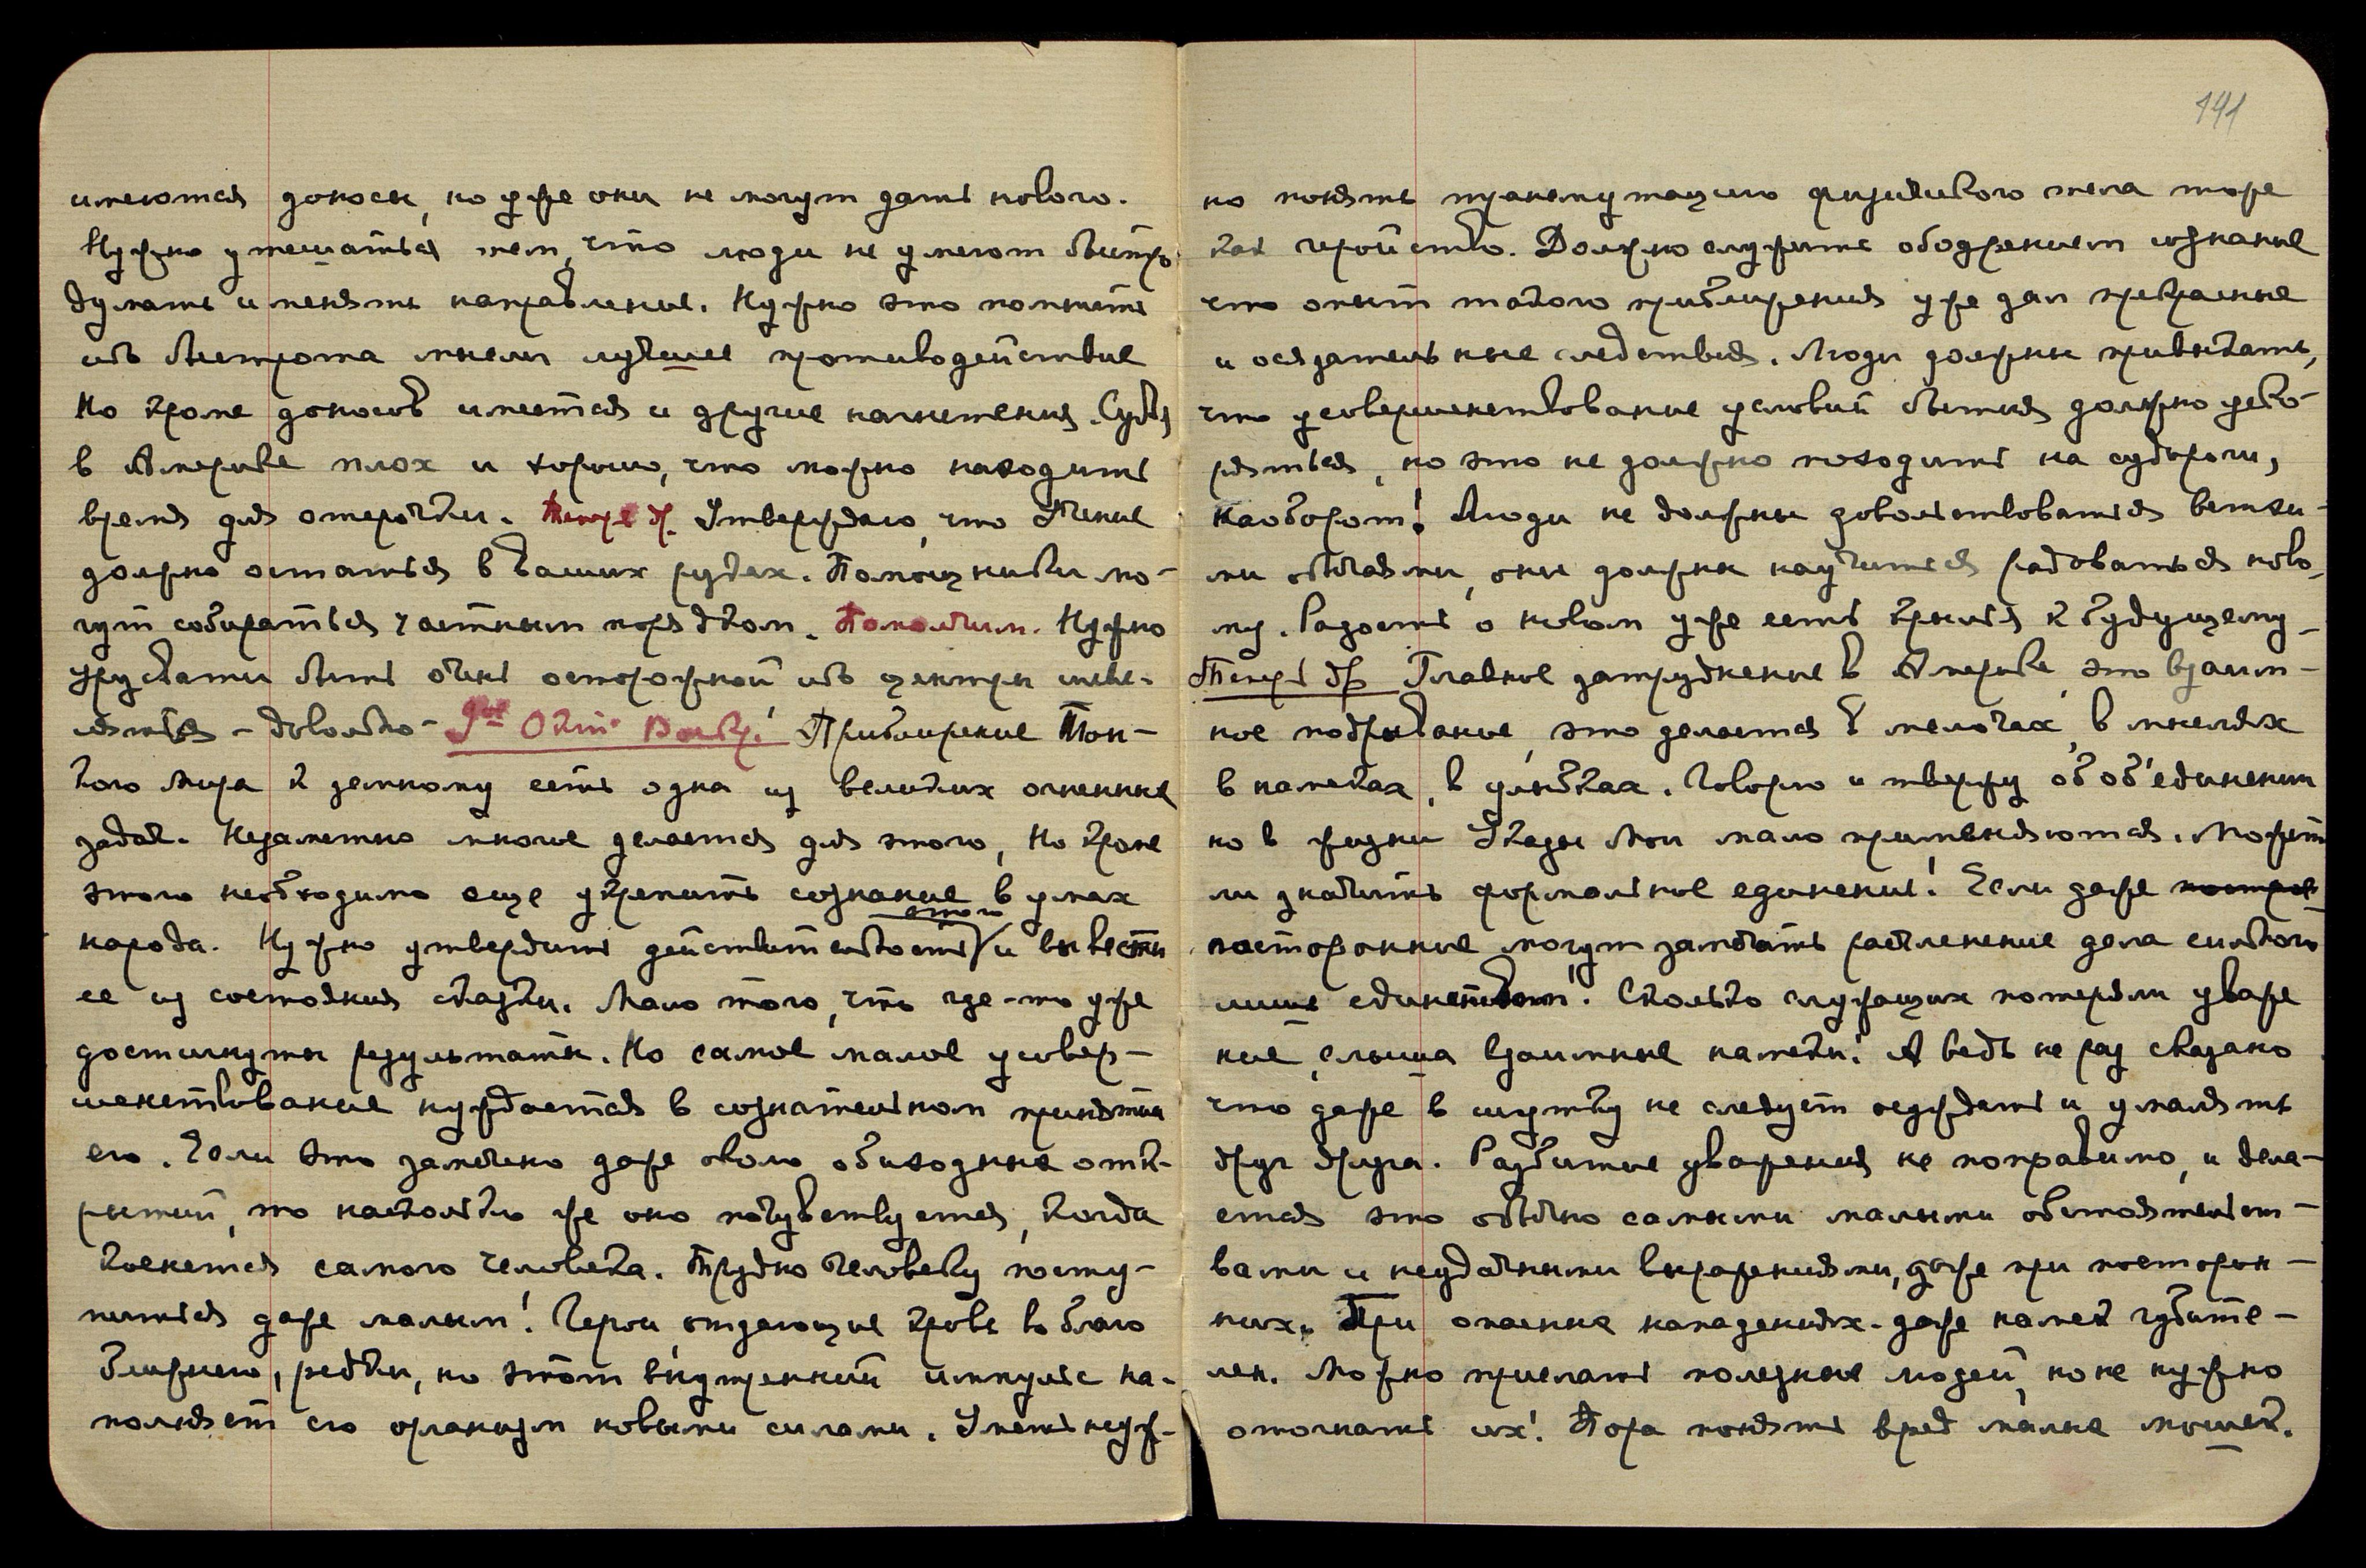 имеются доносы, но уже они не могут дать нового.
Нужно утешаться тем, что люди не умеют быстро
думать и менять направление. Нужно это помнить
ибо быстрота мысли лучшее противодействие
Но кроме доносов имеются и другие нагнетения. Судья
в Америке плох и хорошо, что можно находить
время для отсрочки. Теперь др. Утверждаю, что Учение
должно остаться в ваших руках. Помощники мо-
гут собираться частным порядком. Помолчим. Нужно
Трусвати быть очень осторожной ибо центры шеве-
лятся – довольно –
Приближение Тон-
кого Мира к земному есть одна из великих огненных
задач. Незаметно многое делается для этого, Но кроме
этого необходимо еще укрепить сознание в умах
народа. Нужно утвердить действительность этого и вывести
ее из состояния сказки. Мало того, что где-то уже
достигнуты результаты. Но самое малое усовер-
шенствование нуждается в сознательном принятии
его. Если это замечено даже около обиходных отк-
рытий, то насколько же оно почувствуется, когда
коснется самого человека. Трудно человеку посту-
питься даже малым! Герои, отдающие кровь во благо
ближнего, редки, но этот внутренний импульс на-
полняет его организм новыми силами.
141
но понять трансмутацию физического тела тоже
как геройство. Должно служить ободрением сознание
что опыт такого приближения уже дал прекрасные
и осязательные следствия. Люди должны привыкать,
что усовершенствование условий бытия должно уско-
ряться, но это не должно походить на судороги,
Наоборот! Люди не должны довольствоваться ветхи-
ми обычаями, они должны научиться радоваться ново-
му. Радость о новом уже есть крылья к будущему –
Теперь др Главное затруднение в Америке, это взаим-
ное подрывание, это делается в мелочах, в мыслях
в намеках, в улыбках. Говорю и твержу об об'единении
но в жизни Указы Мои мало применяются. Может
ли значить формальное единение! Если даже
посторонние могут замечать растление дела сильного
лишь единством! Сколько служащих потеряли уваже
ние, слыша взаимные намеки! А ведь не раз сказано
что даже в шутку не следует осуждать и умалять
друг друга. Разбитие уважения не поправимо, и дела-
ется это обычно самыми малыми обстоятельст-
вами и неудачными выражениями, даже при посторон-
них. При опасных нападениях – даже намек губите-
лен. Можно прислать полезных людей, но не нужно
отогнать их! Пора понять вред малых мошек.